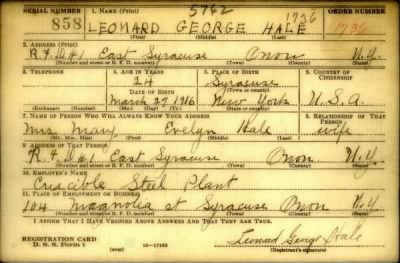 SERIAL NUMBER 1. NAME (Print) 5762 ORDER NUMBER
858 LEONARD GEORGE HALE 1736 1736
(First) (Middle) (Last)
2. ADDRESS (Print)
R.F.D#1 East Syracuse Onon N.Y.
(Number and street or R. F. D. number) (Town) (County) (State)
3. TELEPHONE 4. AGE IN YEARS 5. PLACE OF BIRTH 6. COUNTRY OF CITIZENSHIP
24 Syracuse
DATE OF BIRTH (Town or county)
March 27 1916 New York U.S.A.
(Exchange) (Number) (Mo.) (Day) (Yr.) (State or country)
7. NAME OF PERSON WHO WILL ALWAYS KNOW YOUR ADDRESS 8. RELATIONSHIP OF THAT PERSON
Mrs. Mary Evelyn Hale wife
(Mr., Mrs., Miss) (First) (Middle) (Last)
9. ADDRESS OF THAT PERSON
R.F.D#1 East Syracuse Onon. N.Y.
(Number and street or R. F. D. number) (Town) (County) (State)
10. EMPLOYER'S NAME
Crucible Steel Plant
11. PLACE OF EMPLOYMENT OR BUSINESS
104 Magnolia st Syracuse Onon N.Y.
(Number and street or R. F. D. number) (Town) (County) (State)
I AFFIRM THAT I HAVE VERIFIED ABOVE ANSWERS AND THAT THEY ARE TRUE.
REGISTRATION CARD
D. S. S. Form 1 16-17105 Leonard George Hale
(over) (Registrant's signature)